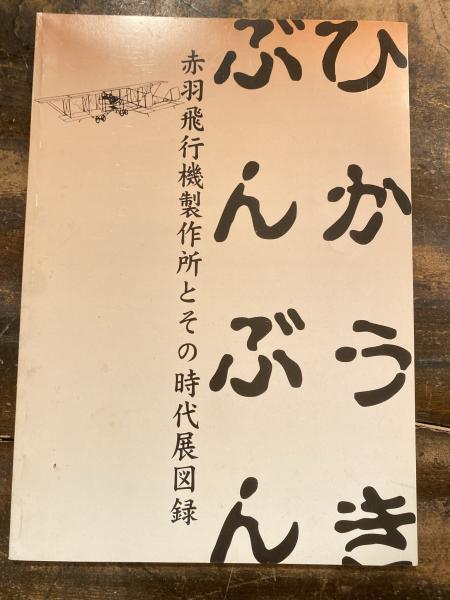 ひかうき
ぶんぶん
赤羽飛行機製作所とその時代展図録